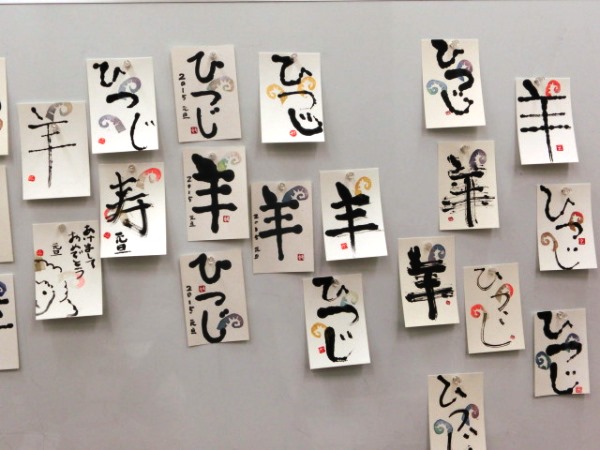 羊
ひつじ
ひつじ
2015 元旦
ひつじ
ひつじ
羊
寿
元旦
羊
2015 元旦
羊
2015 元旦
羊
羊
ひつじ
あけまして
おめでとう
元旦
ひつじ
2015 元旦
ひつじ
羊
ひつじ
ひつじ
ひつじ